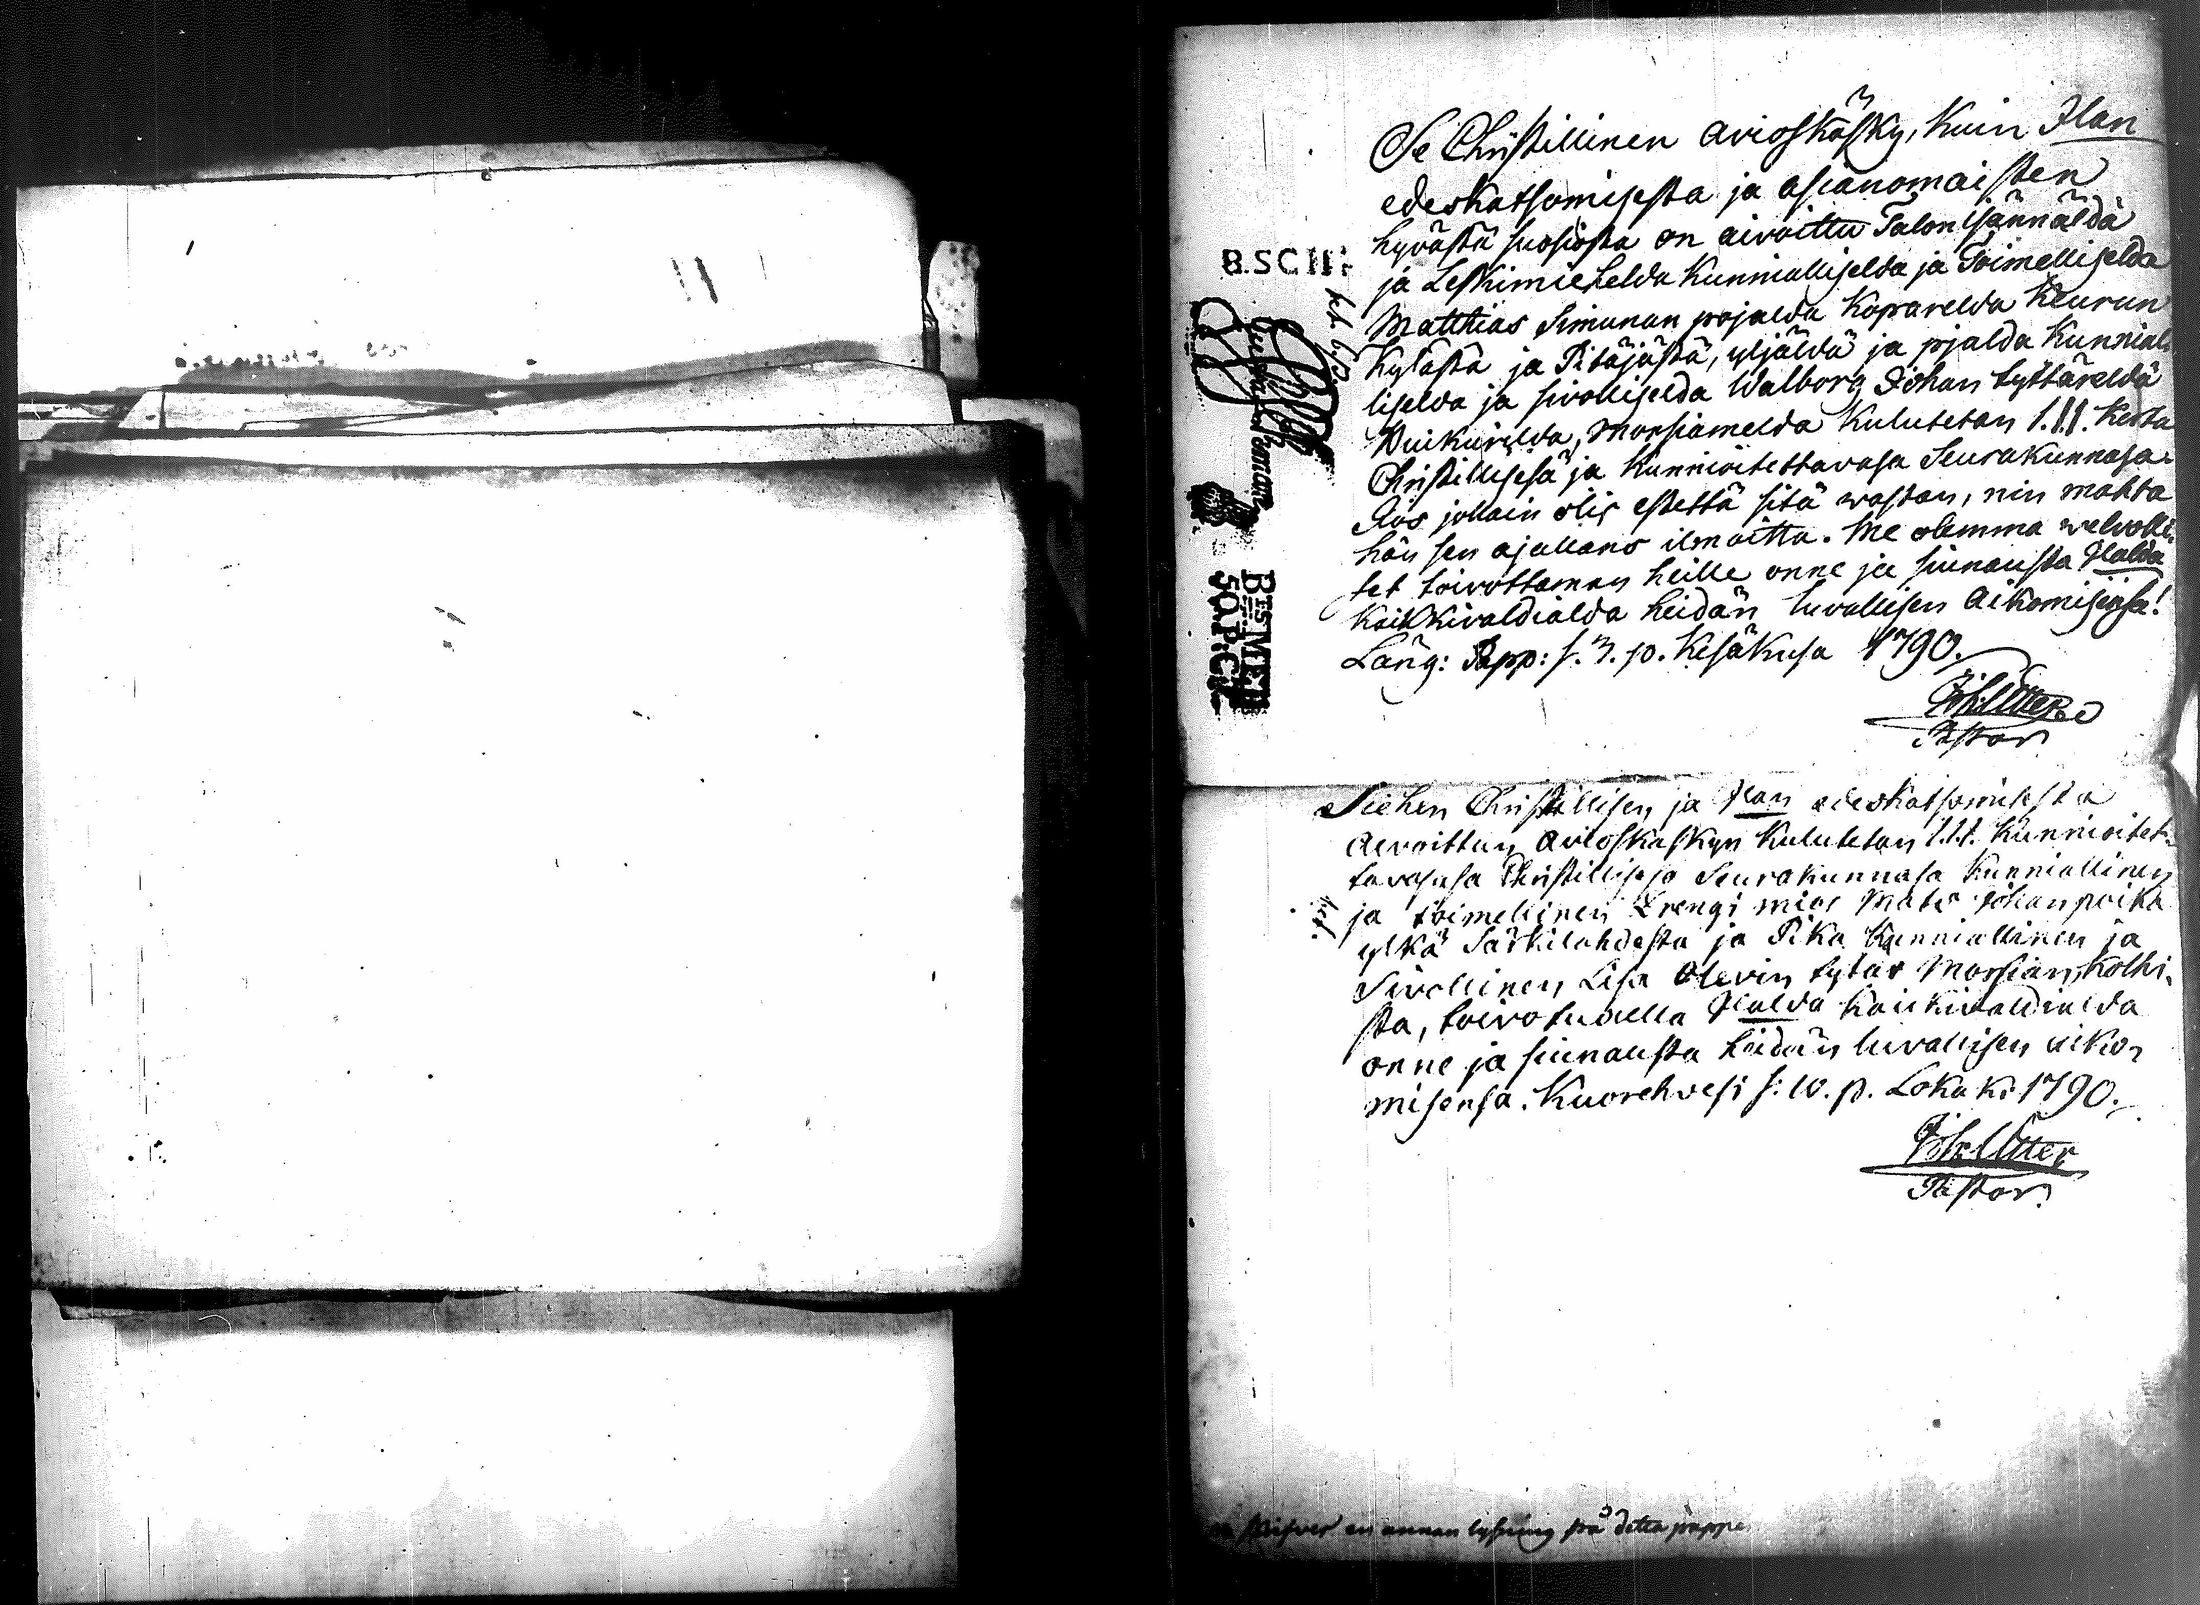 Se Christillinen avioskäsky, kuin Ilan
edeskatsomisesta ja asianomaisten
hyvästä suosiosta on aivoittu Talon isännäldä
ja Leskimieheldä kunnialliselda ja Toimelliselda
Matthias Simunan pojalda Koparelda Keurun
Kylästä ja Pitäjästä, yljäldä ja pjalda Kunnial
liselda ja sivolliselda Walborg Johan tyttäreldä
morsiamelda kulutetan 1. kerta
Christillisesä ja kunnioitettavasa Seurakunnasa.
Jos jollain olis estettä sitä wastan, nin mahta
hän sen ajallans ilmoitta. Me olemma welvolli,
set toivottaman heille onne ja siunausta Ilalda
kaikkivaldialda heidän luvallisen aikomisensa!
Läng: Papp: s. 3. p. Kesäkusa 1790.
Joh: Utter
Pastor
B.SCII:
BESMED
50.P.CT
Siehen Christillisen ja Ilan edeskatsomisesta
aivoittun avioskäskyn kulutetan 1.t. kunnioitet-
tavasasa Christillisesä Seurakunnasa kunniallinen
ja toimellinen Drengi mies Mats Johan poika
ylkä Särkilahdesta ja Pika kunniallinen ja
Sivollinen Lisa Olevin tytär Morsian Kolhi,
sta, toivotudella Ilalda kaikkivaldialda
onne ja siunausta heidän luvallisen aiko,
misensa. Kuorehvesi s: 10. p. Lokak: 1790.
Joh: Utter
Pastor
skrifver en annan lysning på detta pappe